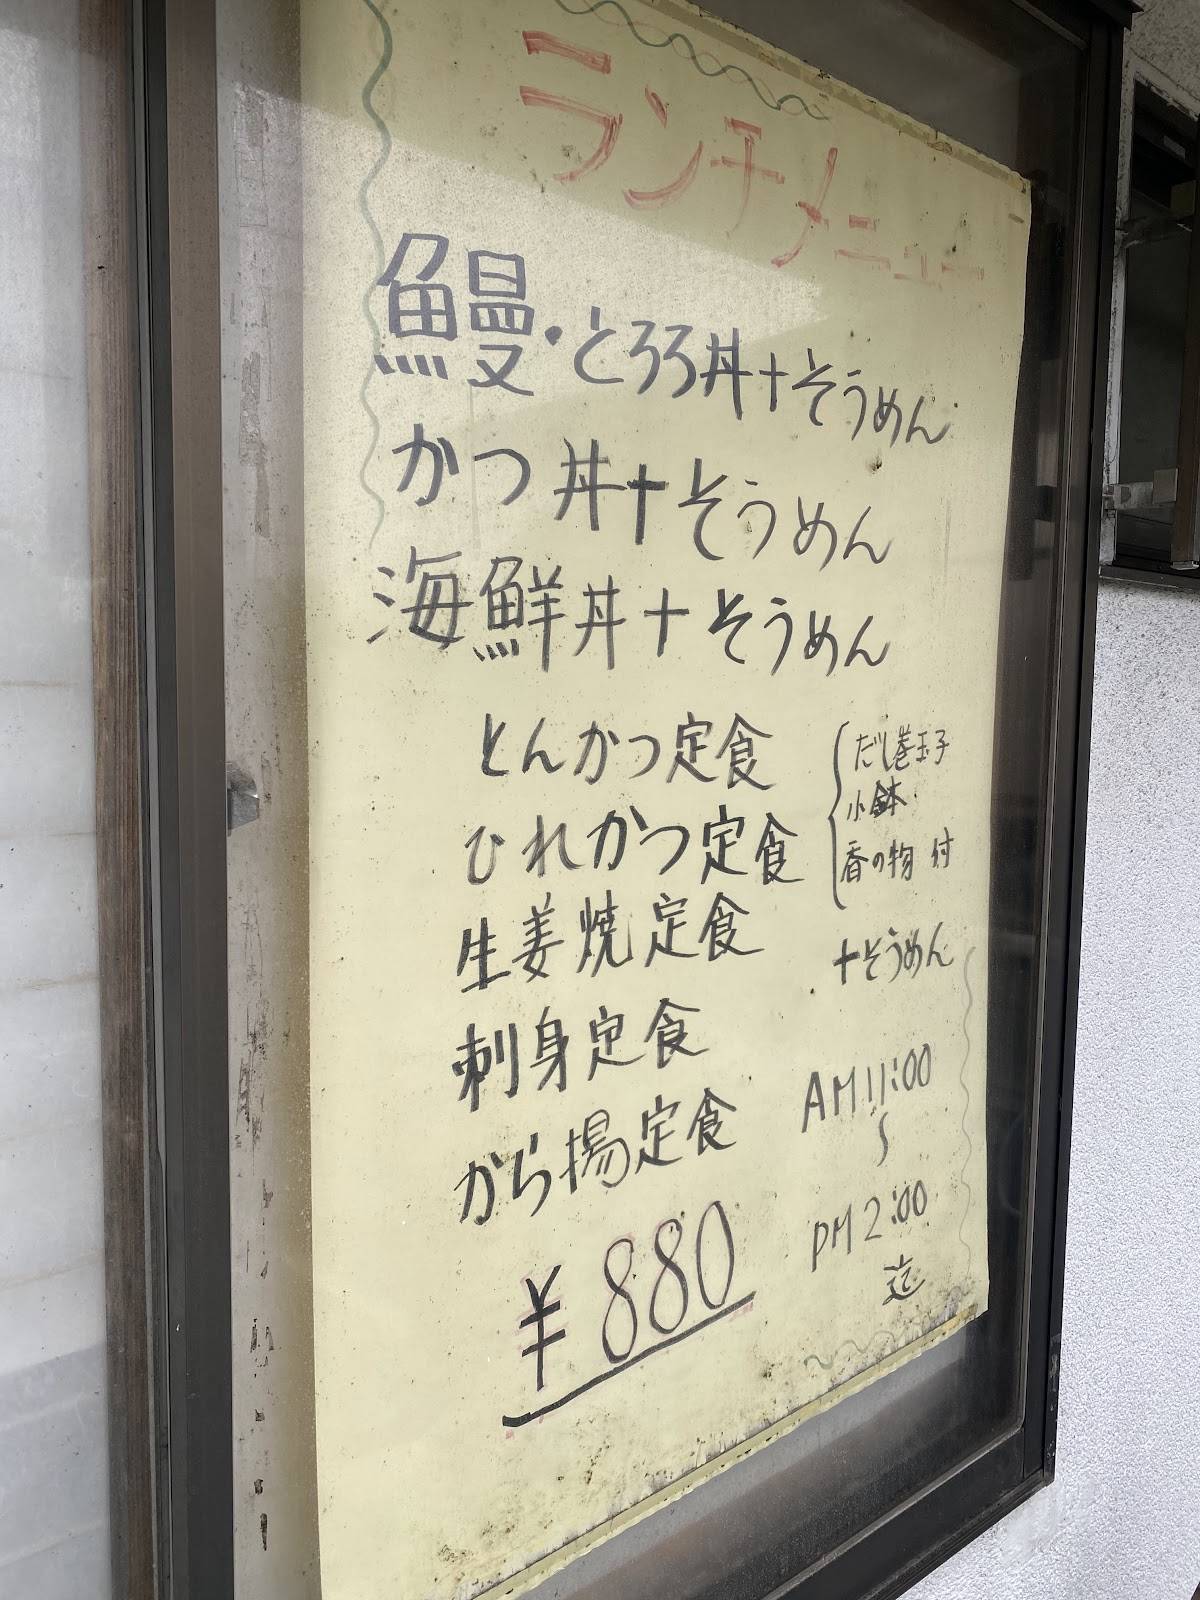 ランチメニュー
鰻・とろろ丼+そうめん
かつ丼+そうめん
海鮮丼+そうめん
とんかつ定食
ひれかつ定食
生姜焼定食
刺身定食
から揚定食
だし巻玉子
小鉢
香の物 付
+そうめん
AM11:00
〜
PM2:00
迄
¥880